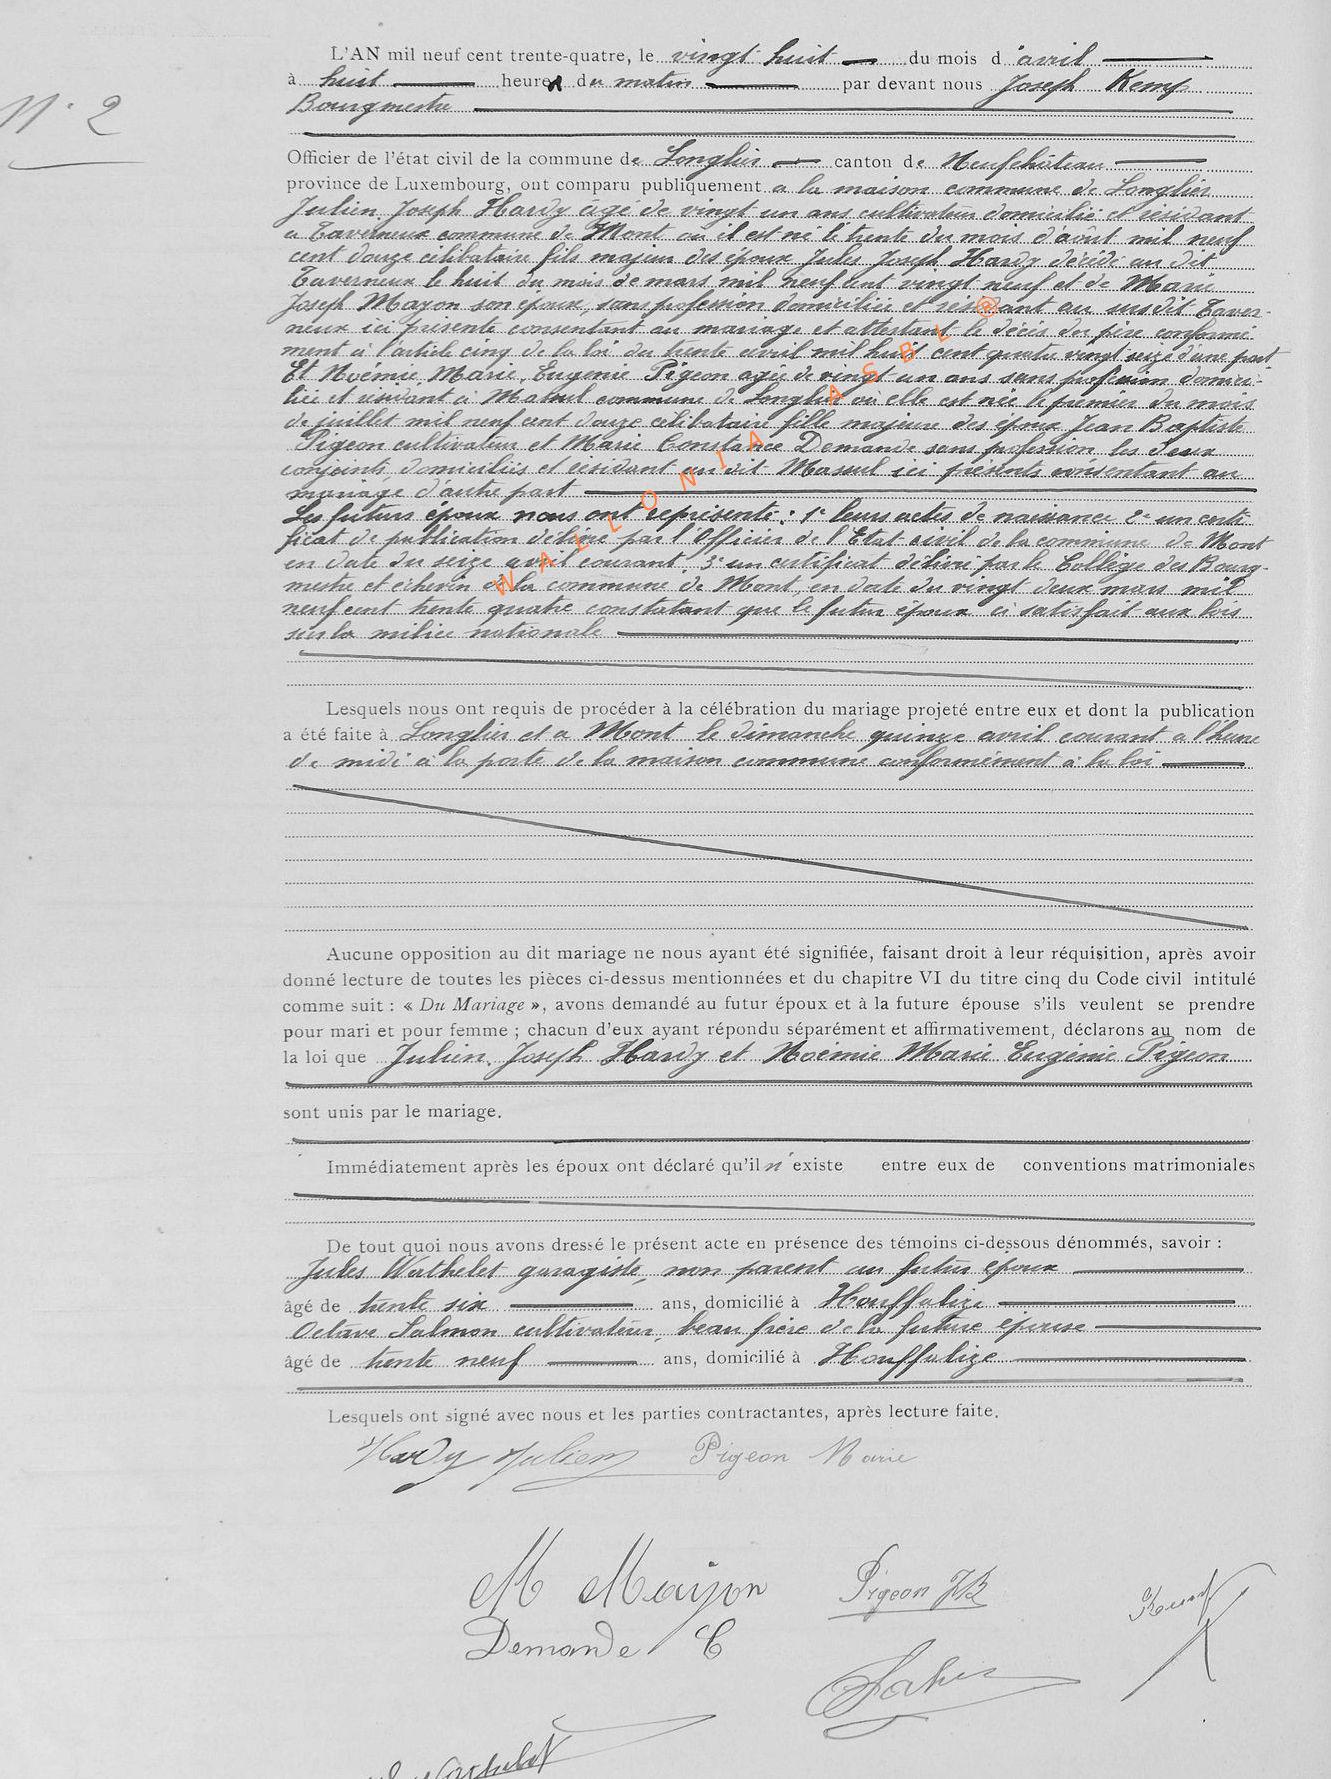 N° 2
L'AN mil neuf cent trente-quatre, le vingt huit du mois d'avril
à huit heures du matin par devant nous Joseph Kemp
Bourgmestre
Officier de l'état civil de la commune de Longlier canton de Neufchâteau
province de Luxembourg, ont comparu publiquement a la maison commune de Longlier
Julien, Joseph Hardy âgé de vingt un ans cultivateur domicilié et résidant
a Taverneux commune de Mont où il est né le trente du mois d'août mil neuf
cent douze célibataire fils majeur des époux Jules Joseph Hardy décédé au dit
Taverneux le huit du mois de mars mil neuf cent vingt neuf et de Marie
Joseph Mayon son épouse, sans profession domiciliée et résidant au susdit Taver-
neux ici présente consentant au mariage et attestant le décès du père conformé-
ment à l'article cinq de la loi du trente avril mil huit cent quatre vingt seize d'une part
Et Noémie, Marie, Eugénie Pigeon agée de vingt un ans sans profession domici-
liée et résidant à Massul commune de Longlier où elle est née le premier du mois
de juillet mil neuf cent douze célibataire fille majeure des époux Jean Baptiste
Pigeon cultivateur et Marie Constance Demande sans profession les deux
conjoints domiciliés et résidant au dit Massul ici présents consentant au
mariage d'autre part
Les futurs époux nous ont représenté : 1° leurs actes de naissance 2° un certi-
ficat de publication délivré par l'Officier de l'Etat civil de la commune de Mont
en date du seize avril courant, 3° un certificat délivré par le Collège des Bourg-
mestre et échevin de la commune de Mont, en date du vingt deux mars mil
neuf cent trente quatre constatant que le futur époux à satisfait aux lois
sur la milice nationale
Lesquels nous ont requis de procéder à la célébration du mariage projeté entre eux et dont la publication
a été faite à Longlier et a Mont le dimanche quinze avril courant a l'heure
de midi à la porte de la maison commune conformément à la loi
Aucune opposition au dit mariage ne nous ayant été signifiée, faisant droit à leur réquisition, après avoir
donné lecture de toutes les pièces ci-dessus mentionnées et du chapitre VI du titre cinq du Code civil intitulé
comme suit : « Du Mariage », avons demandé au futur époux et à la future épouse s'ils veulent se prendre
pour mari et pour femme ; chacun d'eux ayant répondu séparément et affirmativement, déclarons au nom de
la loi que Julien, Joseph Hardy et Noémie Marie Eugénie Pigeon
sont unis par le mariage.
Immédiatement après les époux ont déclaré qu'il n'existe entre eux de conventions matrimoniales
De tout quoi nous avons dressé le présent acte en présence des témoins ci-dessous dénommés, savoir :
Jules Wathelet garagiste, non parent au futur époux
âgé de trente six ans, domicilié à Houffalize
Octave Salmon cultivateur, beau frère de la future épouse
âgé de trente neuf ans, domicilié à Houffalize
Lesquels ont signé avec nous et les parties contractantes, après lecture faite.
Hardy Julien Pigeon Marie
M Mayon Pigeon JB
Demande C
Wathelet
WALLONIA ASBL ®